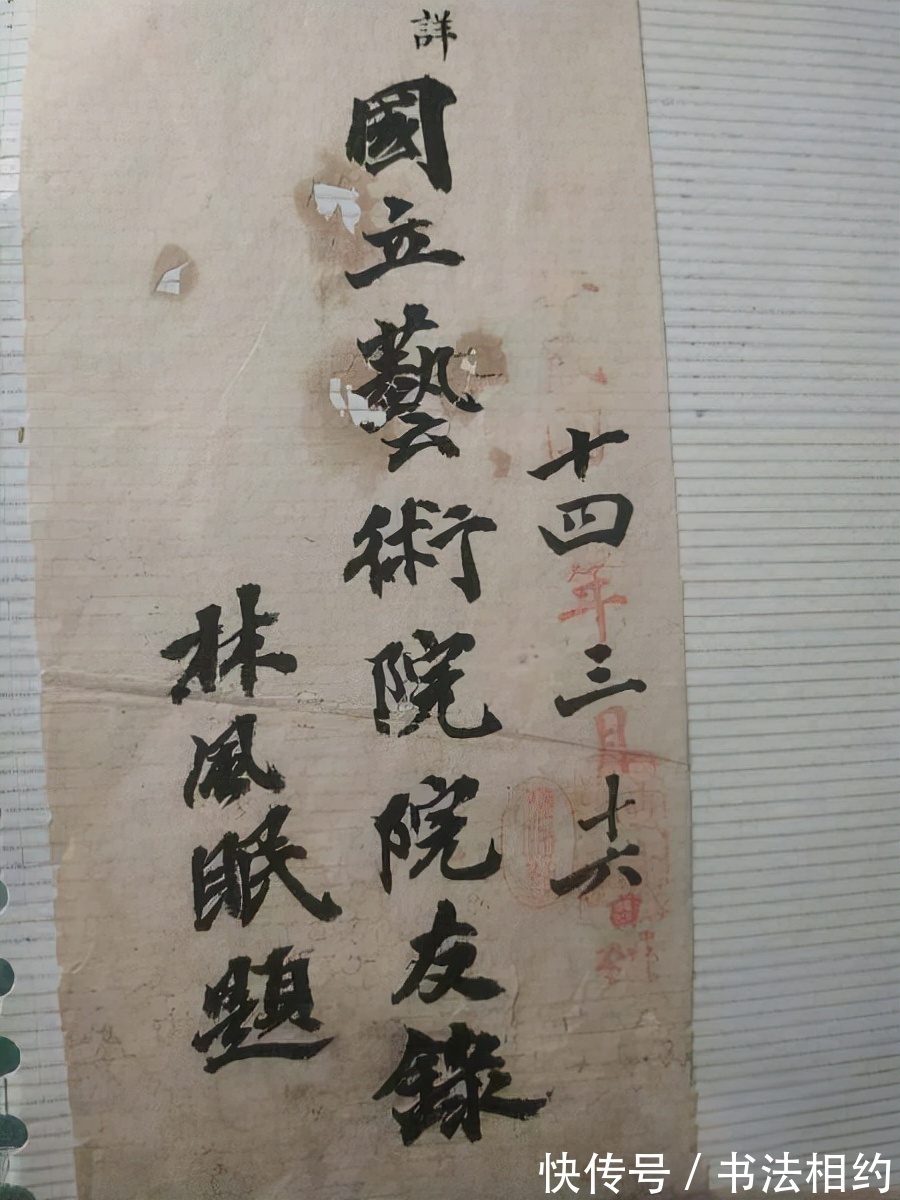 詳
十四年三月十六日
國立藝術院院友錄
林風眠題
快传号 / 书法相约